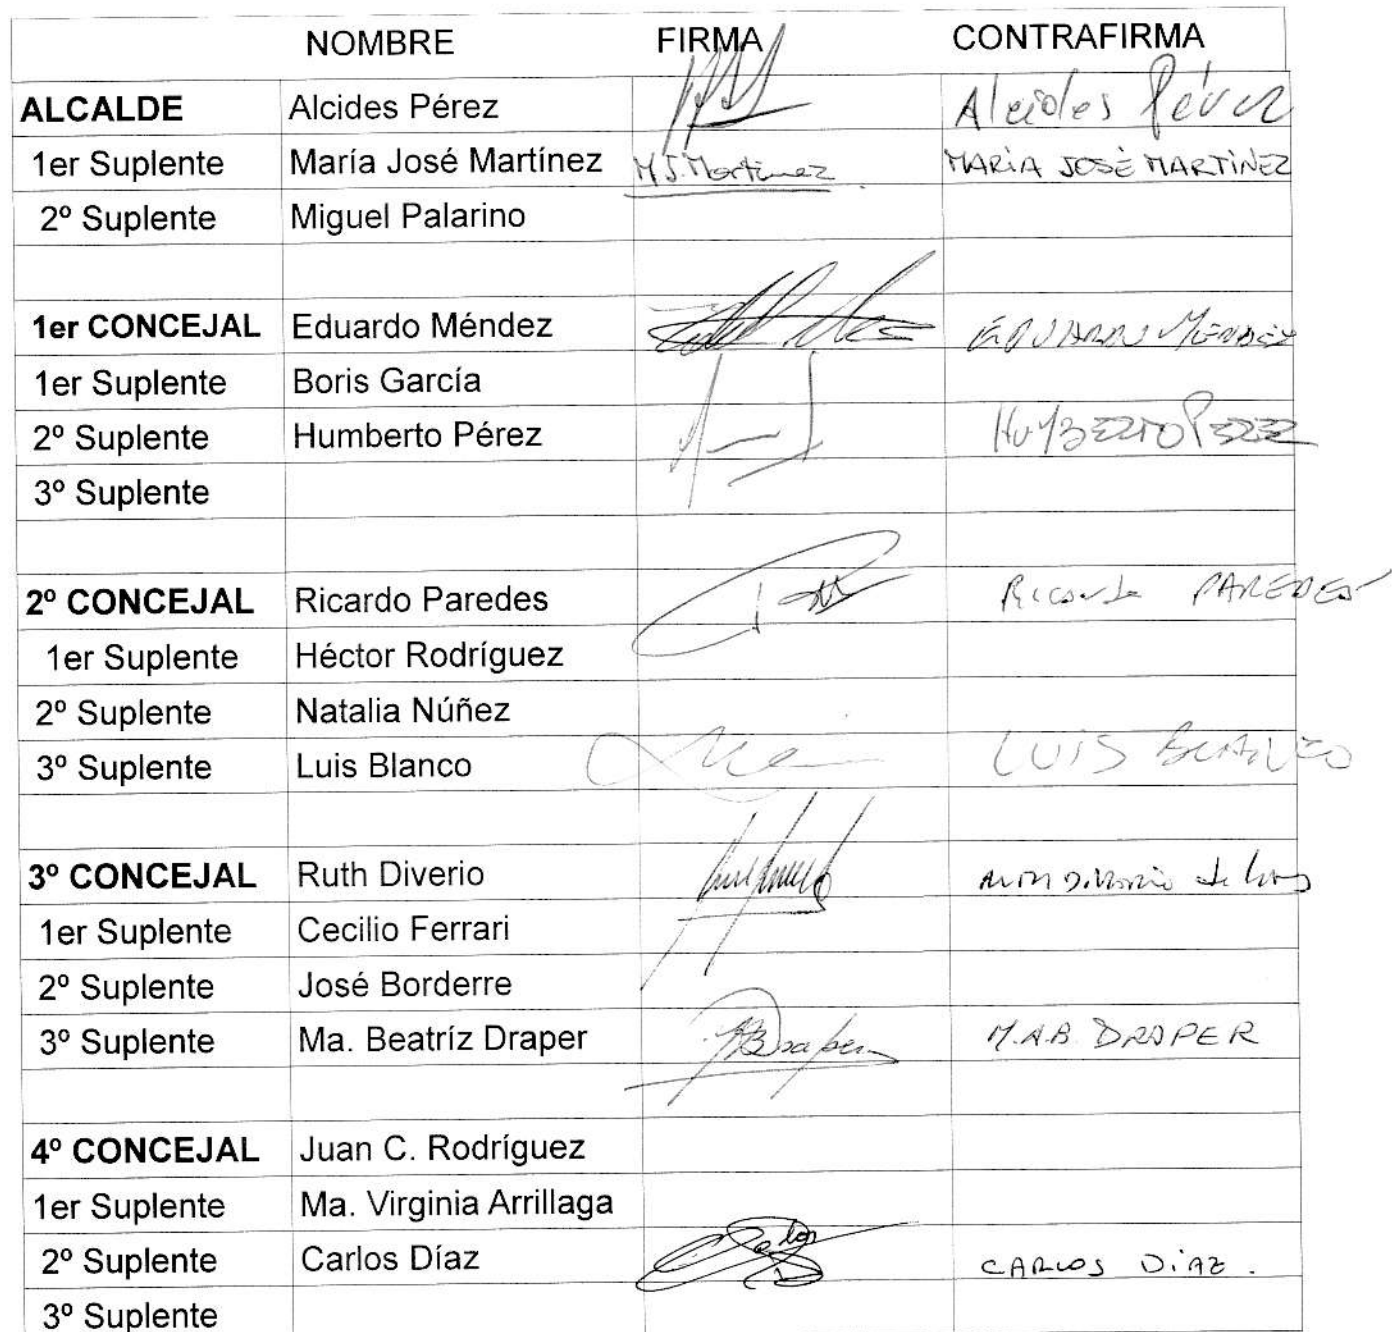 NOMBRE FIRMA CONTRAFIRMA
ALCALDE Alcides Pérez Alcides Pérez
1er Suplente María José Martínez M J. Martinez MARÍA JOSÉ MARTÍNEZ
2º Suplente Miguel Palarino
1er CONCEJAL Eduardo Méndez EDUARDO MÉNDEZ
1er Suplente Boris García
2º Suplente Humberto Pérez HUMBERTO PEREZ
3º Suplente
2º CONCEJAL Ricardo Paredes Ricardo PAREDES
1er Suplente Héctor Rodríguez
2º Suplente Natalia Núñez
3º Suplente Luis Blanco LUIS BLANCO
3º CONCEJAL Ruth Diverio
1er Suplente Cecilio Ferrari
2º Suplente José Borderre
3º Suplente Ma. Beatríz Draper Draper M.A.B. DRAPER
4º CONCEJAL Juan C. Rodríguez
1er Suplente Ma. Virginia Arrillaga
2º Suplente Carlos Díaz CARLOS DÍAZ.
3º Suplente